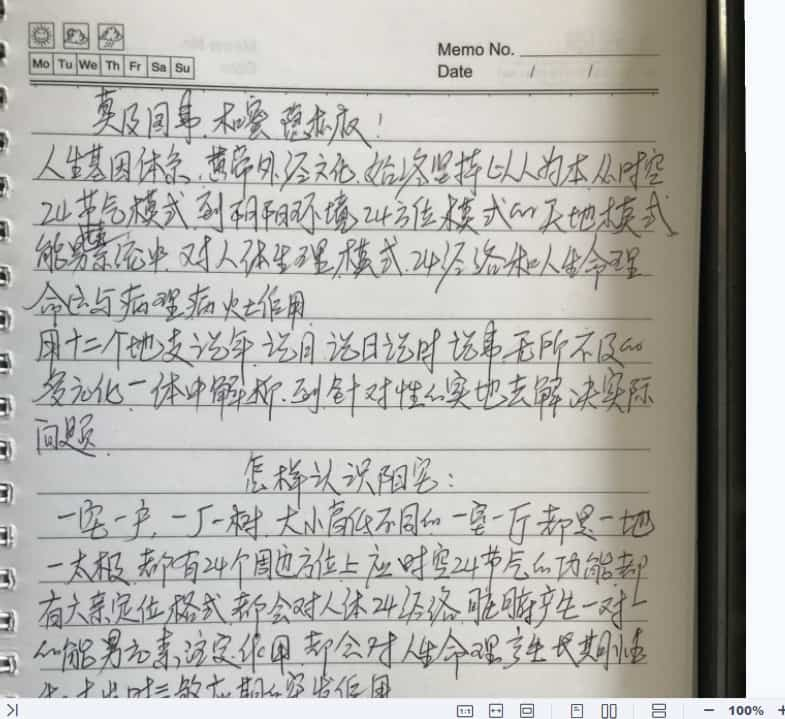 Mo Tu We Th Fr Sa Su
Memo No.
Date / /
人生基因体系、黄帝外经文化、始终坚持以人为本、从时空
24节气模式、到阴阳环境24方位模式的天地模式
能量系统中、对人体生理模式、24经络和人生命理
命运与病理病灶作用
用十二个地支说年、说月、说日说时、说事无所不及的
多元化一体中解析、到针对性的实地去解决实际
问题
怎样认识阳宅：
一宅一户、一厂一树、大小高低不同的一室一厅都是一地
一太极、都有24个周边方位上应时空24节气的功能都
有六亲定位格式、都会对人体24经络脏腑产生一对一
的能量元素注定作用、都会对人生命理产生长期性
100%